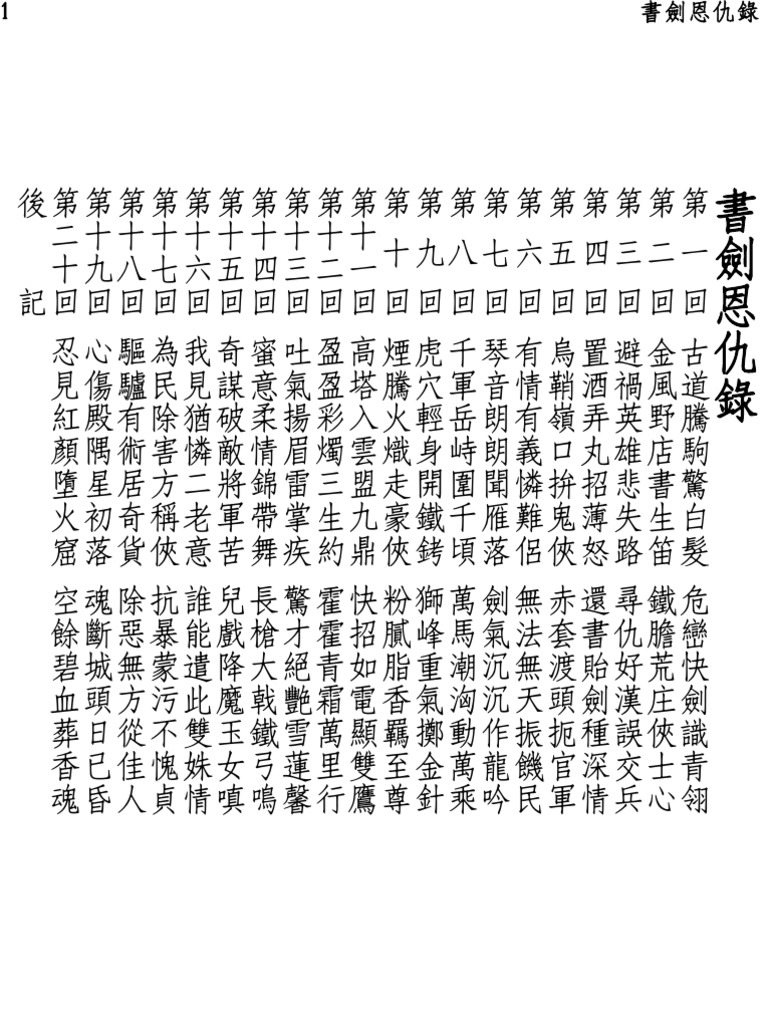 1
書劍恩仇錄
書劍恩仇錄
第一回 古道騰駒驚白髮 危巒快劍識青翎
第二回 金風野店書生笛 鐵膽荒庄俠士心
第三回 避禍英雄悲失路 尋仇好漢誤交兵
第四回 置酒弄丸招薄怒 還書貽劍種深情
第五回 烏鞘嶺口拚鬼俠 赤套渡頭扼官軍
第六回 有情有義憐難侶 無法無天振饑民
第七回 琴音朗朗聞雁落 劍氣沉沉作龍吟
第八回 千軍岳峙圍千頃 萬馬潮洶動萬乘
第九回 虎穴輕身開鐵銬 獅峰重氣擲金針
第十回 煙騰火熾走豪俠 粉膩脂香羈至尊
第十一回 高塔入雲盟九鼎 快招如電顯雙鷹
第十二回 盈盈彩燭三生約 霍霍青霜萬里行
第十三回 吐氣揚眉雷掌疾 驚才絕艷雪蓮馨
第十四回 蜜意柔情錦帶舞 長槍大戟鐵弓鳴
第十五回 奇謀破敵將軍苦 兒戲降魔玉女嗔
第十六回 我見猶憐二老意 誰能遣此雙姝情
第十七回 為民除害方稱俠 抗暴蒙污不愧貞
第十八回 驅驢有術居奇貨 除惡無方從佳人
第十九回 心傷殿隅星初落 魂斷城頭日已昏
第二十回 忍見紅顏墮火窟 空餘碧血葬香魂
後記